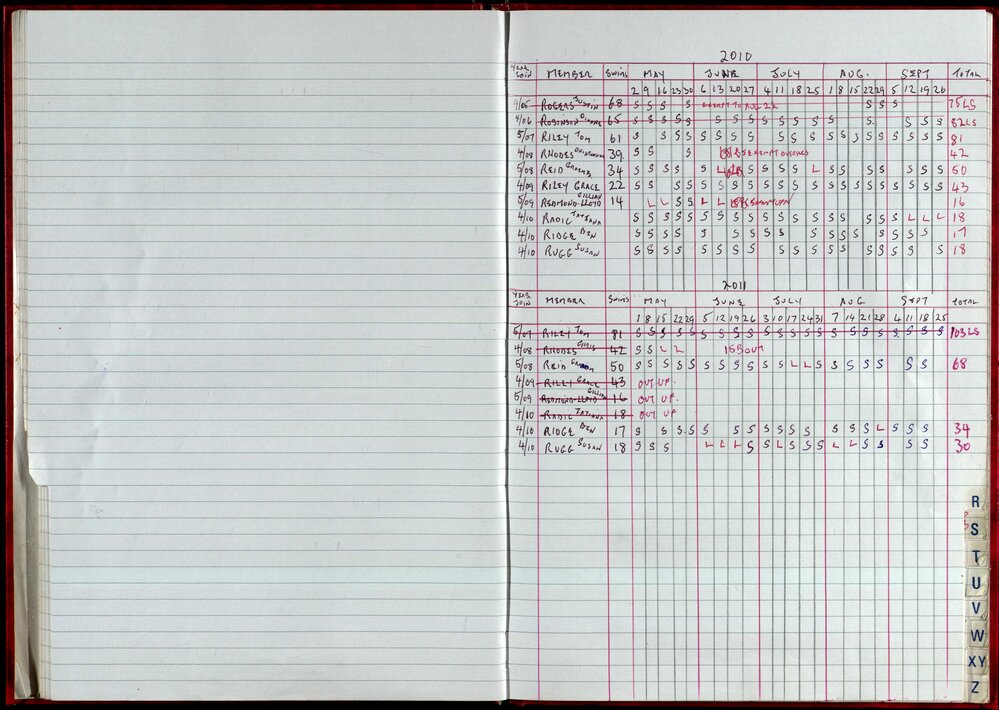 2010
YEAR JOIN MEMBER SWIMS MAY JUNE JULY AUG. SEPT TOTAL
2 9 16 23 30 6 13 20 27 4 11 18 25 1 8 15 22 29 5 12 19 26
4/05 ROGERS JUSTIN 68 S S S S EXEMPT TO AUG 22 S S S 75 LS
4/06 ROBINSON DIANNE 65 S S S S S S S S S S S S S S S S S 82 LS
5/07 RILEY TOM 61 S S S S S S S S S S S S S S S S S S S S 81
4/08 RHODES 39 S S S EXEMPT 42
5/08 REID GRAEME 34 S S S S S L S S S S L S S S S S S S 50
4/09 RILEY GRACE 22 S S S S S S S S S S S S S S S S S S S S S 43
5/09 REDMOND-LLOYD GILLIAN 14 L L S S L L 16
4/10 RADIC TATJANA S S S S S S S S S S S S S S S S S S L L L 18
4/10 RIDGE BEN S S S S S S S S S S S S S S S S S 17
4/10 RUGG SUSAN S S S S S S S S S S S S S S S S S S 18
2011
YEAR JOIN MEMBER SWIMS MAY JUNE JULY AUG SEPT TOTAL
1 8 15 22 29 5 12 19 26 3 10 17 24 31 7 14 21 28 4 11 18 25
5/07 RILEY TOM 81 S S S S S S S S S S S S S S S S S S S S S S 103 LS
4/08 RHODES CHRIS 42 S S L L 153 OUT
5/08 REID 50 S S S S S S S S S S S L L S S S S S S S 68
4/09 RILEY GRACE 43 OUT UF.
5/09 REDMOND-LLOYD GILLIAN 16 OUT UF.
4/10 RADIC TATJANA 18 OUT UF
4/10 RIDGE BEN 17 S S S S S S S S S S S S S S L S S S 34
4/10 RUGG SUSAN 18 S S S L L L S S L S S S L L S S S S 30
R
S
T
U
V
W
XY
Z